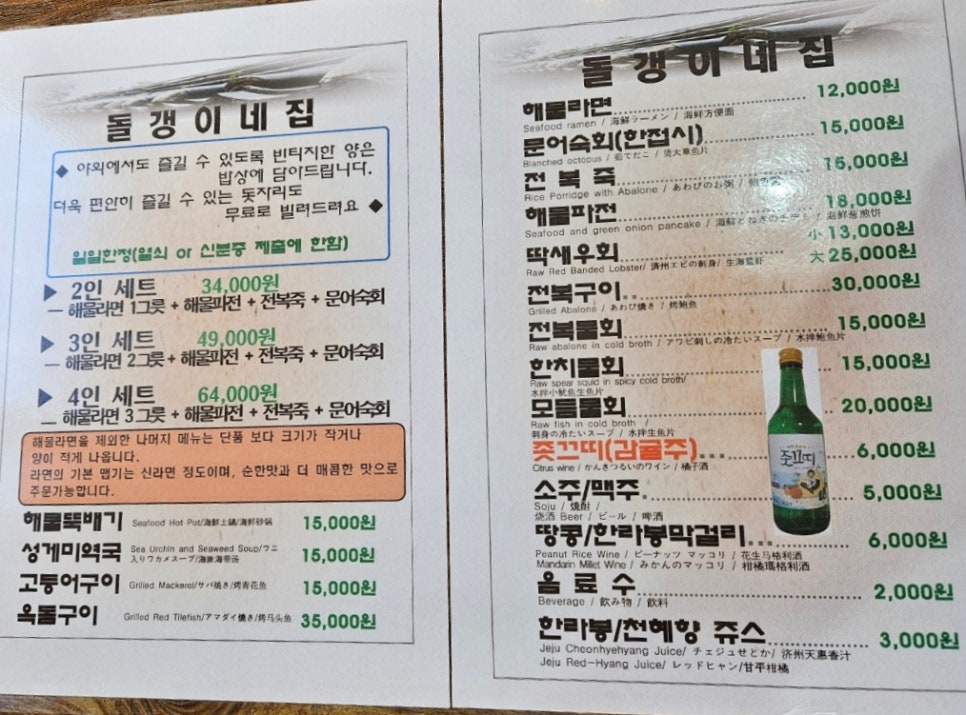 돌 갱 이 네 집
◆ 야외에서도 즐길 수 있도록 빈티지한 양은
밥상에 담아드립니다.
더욱 편안히 즐길 수 있는 돗자리도
무료로 빌려드려요 ◆
일일한정(열쇠 or 신분증 제출에 한함)
▶ 2인 세트 34,000원
─ 해물라면 1그릇 + 해물파전 + 전복죽 + 문어숙회
▶ 3인 세트 49,000원
─ 해물라면 2그릇 + 해물파전 + 전복죽 + 문어숙회
▶ 4인 세트 64,000원
─ 해물라면 3그릇 + 해물파전 + 전복죽 + 문어숙회
해물라면을 제외한 나머지 메뉴는 단품 보다 크기가 작거나
양이 적게 나옵니다.
라면의 기본 맵기는 신라면 정도이며, 순한맛과 더 매콤한 맛으로
주문가능합니다.
해물뚝배기 Seafood Hot Pot/海鮮土鍋/海鲜砂锅 15,000원
성게미역국 Sea Urchin and Seaweed Soup/ウニ
入りワカメスープ/海胆海带汤 15,000원
고등어구이 Grilled Mackerel/サバ焼き/烤青花鱼 15,000원
옥돔구이 Grilled Red Tilefish/アマダイ焼き/烤马头鱼 35,000원
돌 갱 이 네 집
해물라면 12,000원
Seafood ramen / 海鮮ラーメン / 海鲜方便面
문어숙회(한접시) 15,000원
Blanched octopus / 茹でだこ / 烫大章鱼片
전 복 죽 15,000원
Rice Porridge with Abalone / あわびのお粥 /
해물파전 18,000원
Seafood and green onion pancake / 海鮮とねぎのチヂミ / 海鲜葱煎饼
小 13,000원
딱새우회 大 25,000원
Raw Red Banded Lobster/ 済州エビの刺身/ 生海螯虾
전복구이 30,000원
Grilled Abalone / あわび焼き / 烤鲍鱼
전복물회 15,000원
Raw abalone in cold broth / アワビ刺しの冷たいスープ / 水拌鲍鱼片
한치물회 15,000원
Raw spear squid in spicy cold broth/
水拌小鱿鱼生鱼片
모듬물회 20,000원
Raw fish in cold broth /
刺身の冷たいスープ / 水拌生鱼片
즛끄띠(감귤주) 6,000원
Citrus wine / かんきつるいのワイン / 橘子酒
소주/맥주 5,000원
Soju / 焼酎 /
烧酒 Beer / ビール / 啤酒
땅콩/한라봉막걸리 6,000원
Peanut Rice Wine / ピーナッツ マッコリ / 花生马格利酒
Mandarin Millet Wine / みかんのマッコリ / 柑橘瑪格利酒
음 료 수 2,000원
Beverage / 飲み物 / 飲料
한라봉/천혜향 쥬스 3,000원
Jeju Cheonhyehyang Juice/ チェジュせとか/ 济州天惠香汁
Jeju Red-Hyang Juice/ レッドヒャン/甘平柑橘